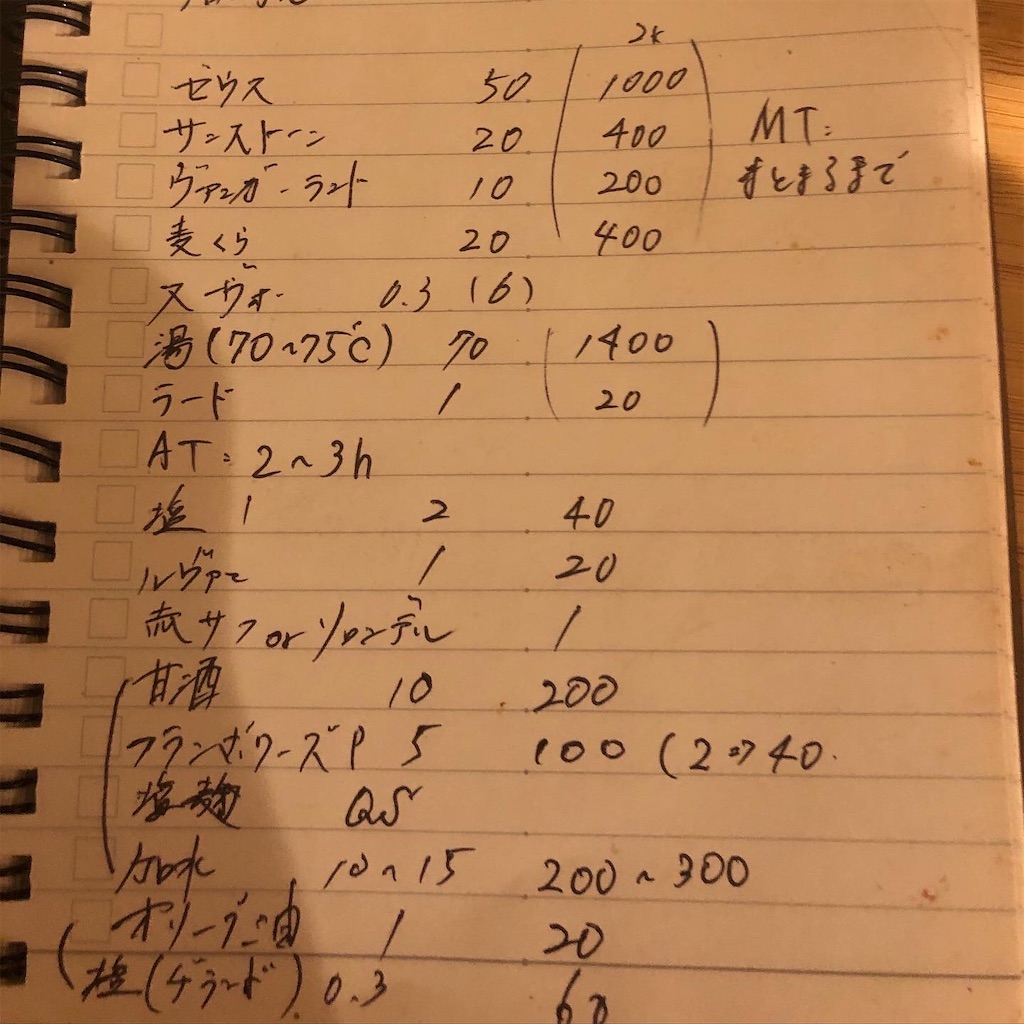 2k
ゼウス 50 1000
サンストーン 20 400 MT:
ヴァンガーラント 10 200 まとまるまで
麦くら 20 400
スーヴォー 0.3 (6)
湯(70~75℃) 70 1400
ラード 1 20
AT: 2~3h
塩 1 2 40
ルヴァン 1 20
赤サフ or ソロンデル 1
甘酒 10 200
フランボワーズP 5 100 (2⇒40.
塩麹 QS
加水 10~15 200~300
オリーブ油 1 20
塩(ゲランド) 0.3 60